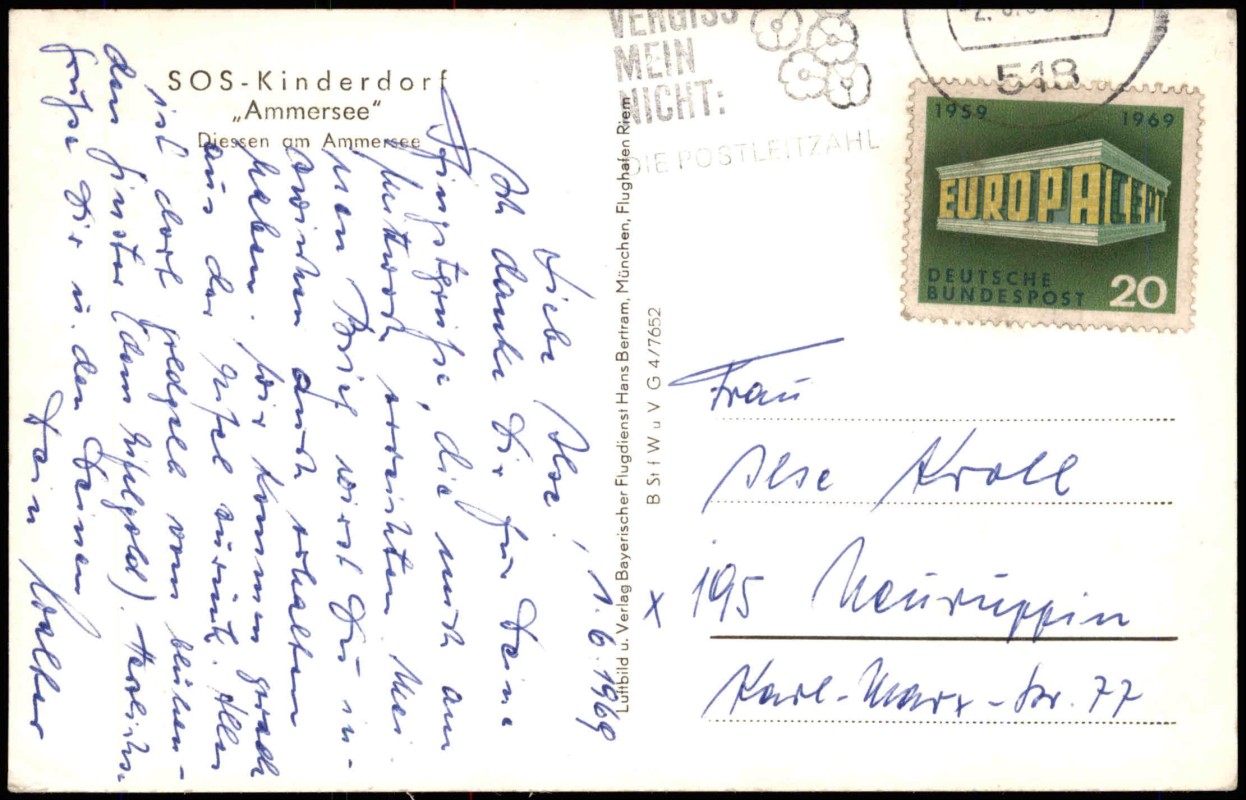 SOS-Kinderdorf
„Ammersee“
Diessen am Ammersee
Liebe Ilse!
1.6.1969
Ich danke Dir für Deine
Pfingstgrüße, die mich am
Mittwoch erreichten. Mei-
nen Brief wirst Du in-
zwischen auch erhalten
haben. Wir kommen gerade
aus der zurück. Alles
ist dort goldgelb vom blühen-
den Ginster (dem). Herzliche
Grüße Dir u. den Deinen
Dein Walter
Luftbild u. Verlag Bayerischer Flugdienst Hans Bertram, München, Flughafen Riem
B St f W u V G 4/7652
VERGISS
MEIN
NICHT:
DIE POSTLEITZAHL
518
1959 1969
EUROPA CEPT
DEUTSCHE
BUNDESPOST 20
Frau
Ilse Kroll
x 195 Neuruppin
Karl-Marx-Str. 77